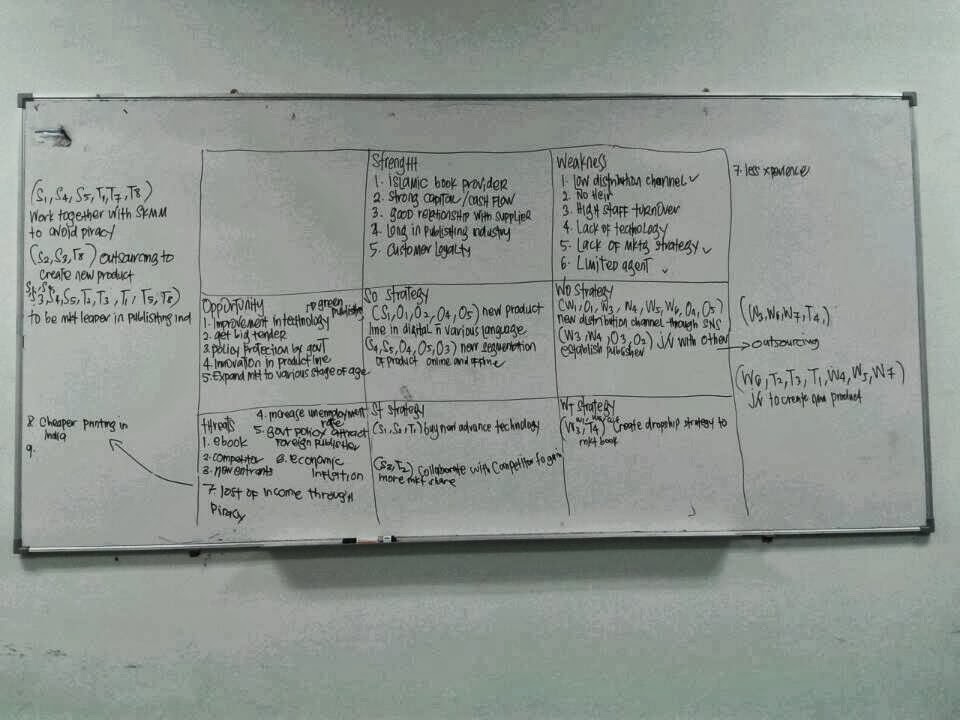 (S1, S4, S5, T1, T7, T8)
Work together with SKMM
to avoid piracy
(S2, S3, T8) outsourcing to
create new product
to be mkt leader in publishing ind
8. Cheaper printing in
india
9.
Strenght
1. Islamic book provider
2. Strong capital/cash flow
3. good relationship with supplier
4. Long in publishing industry
5. Customer Loyalty
Weakness
1. low distribution channel
2. No Heir
3. High staff turnover
4. Lack of technology
5. Lack of mktg strategy
6. Limited agent
7. less xperience
Opportunity
green
publishing
1. Improvement in technology
2. get big tender
3. policy protection by govt
4. Innovation in product line
5. Expand mkt to various stage of age
SO strategy
(S1, O1, O2, O4, O5) new product
line in digital n various language
(S4, S5, O4, O5, O3) new segmentation
of product online and offline
WO strategy
(W1, O1, W3, W4, W5, W6, O4, O5)
new distribution channel through SNS
(W3, W4, O3, O5) JV with other
establish publisher
(W3, W6, W7, T4,)
outsourcing
(W6, T2, T3, T1, W4, W5, W7)
JV to create new product
Threats
1. ebook
2. competitor
3. new entrants
4. increase unemployment
rate
5. govt policy attract
foreign publisher
6. economic
inflation
7. lost of income through
piracy
ST strategy
(S1, S2, T1) buy new advance technology
(S3, T2) collaborate with competitor to gain
more mkt share
WT strategy
Create dropship strategy to
mkt book